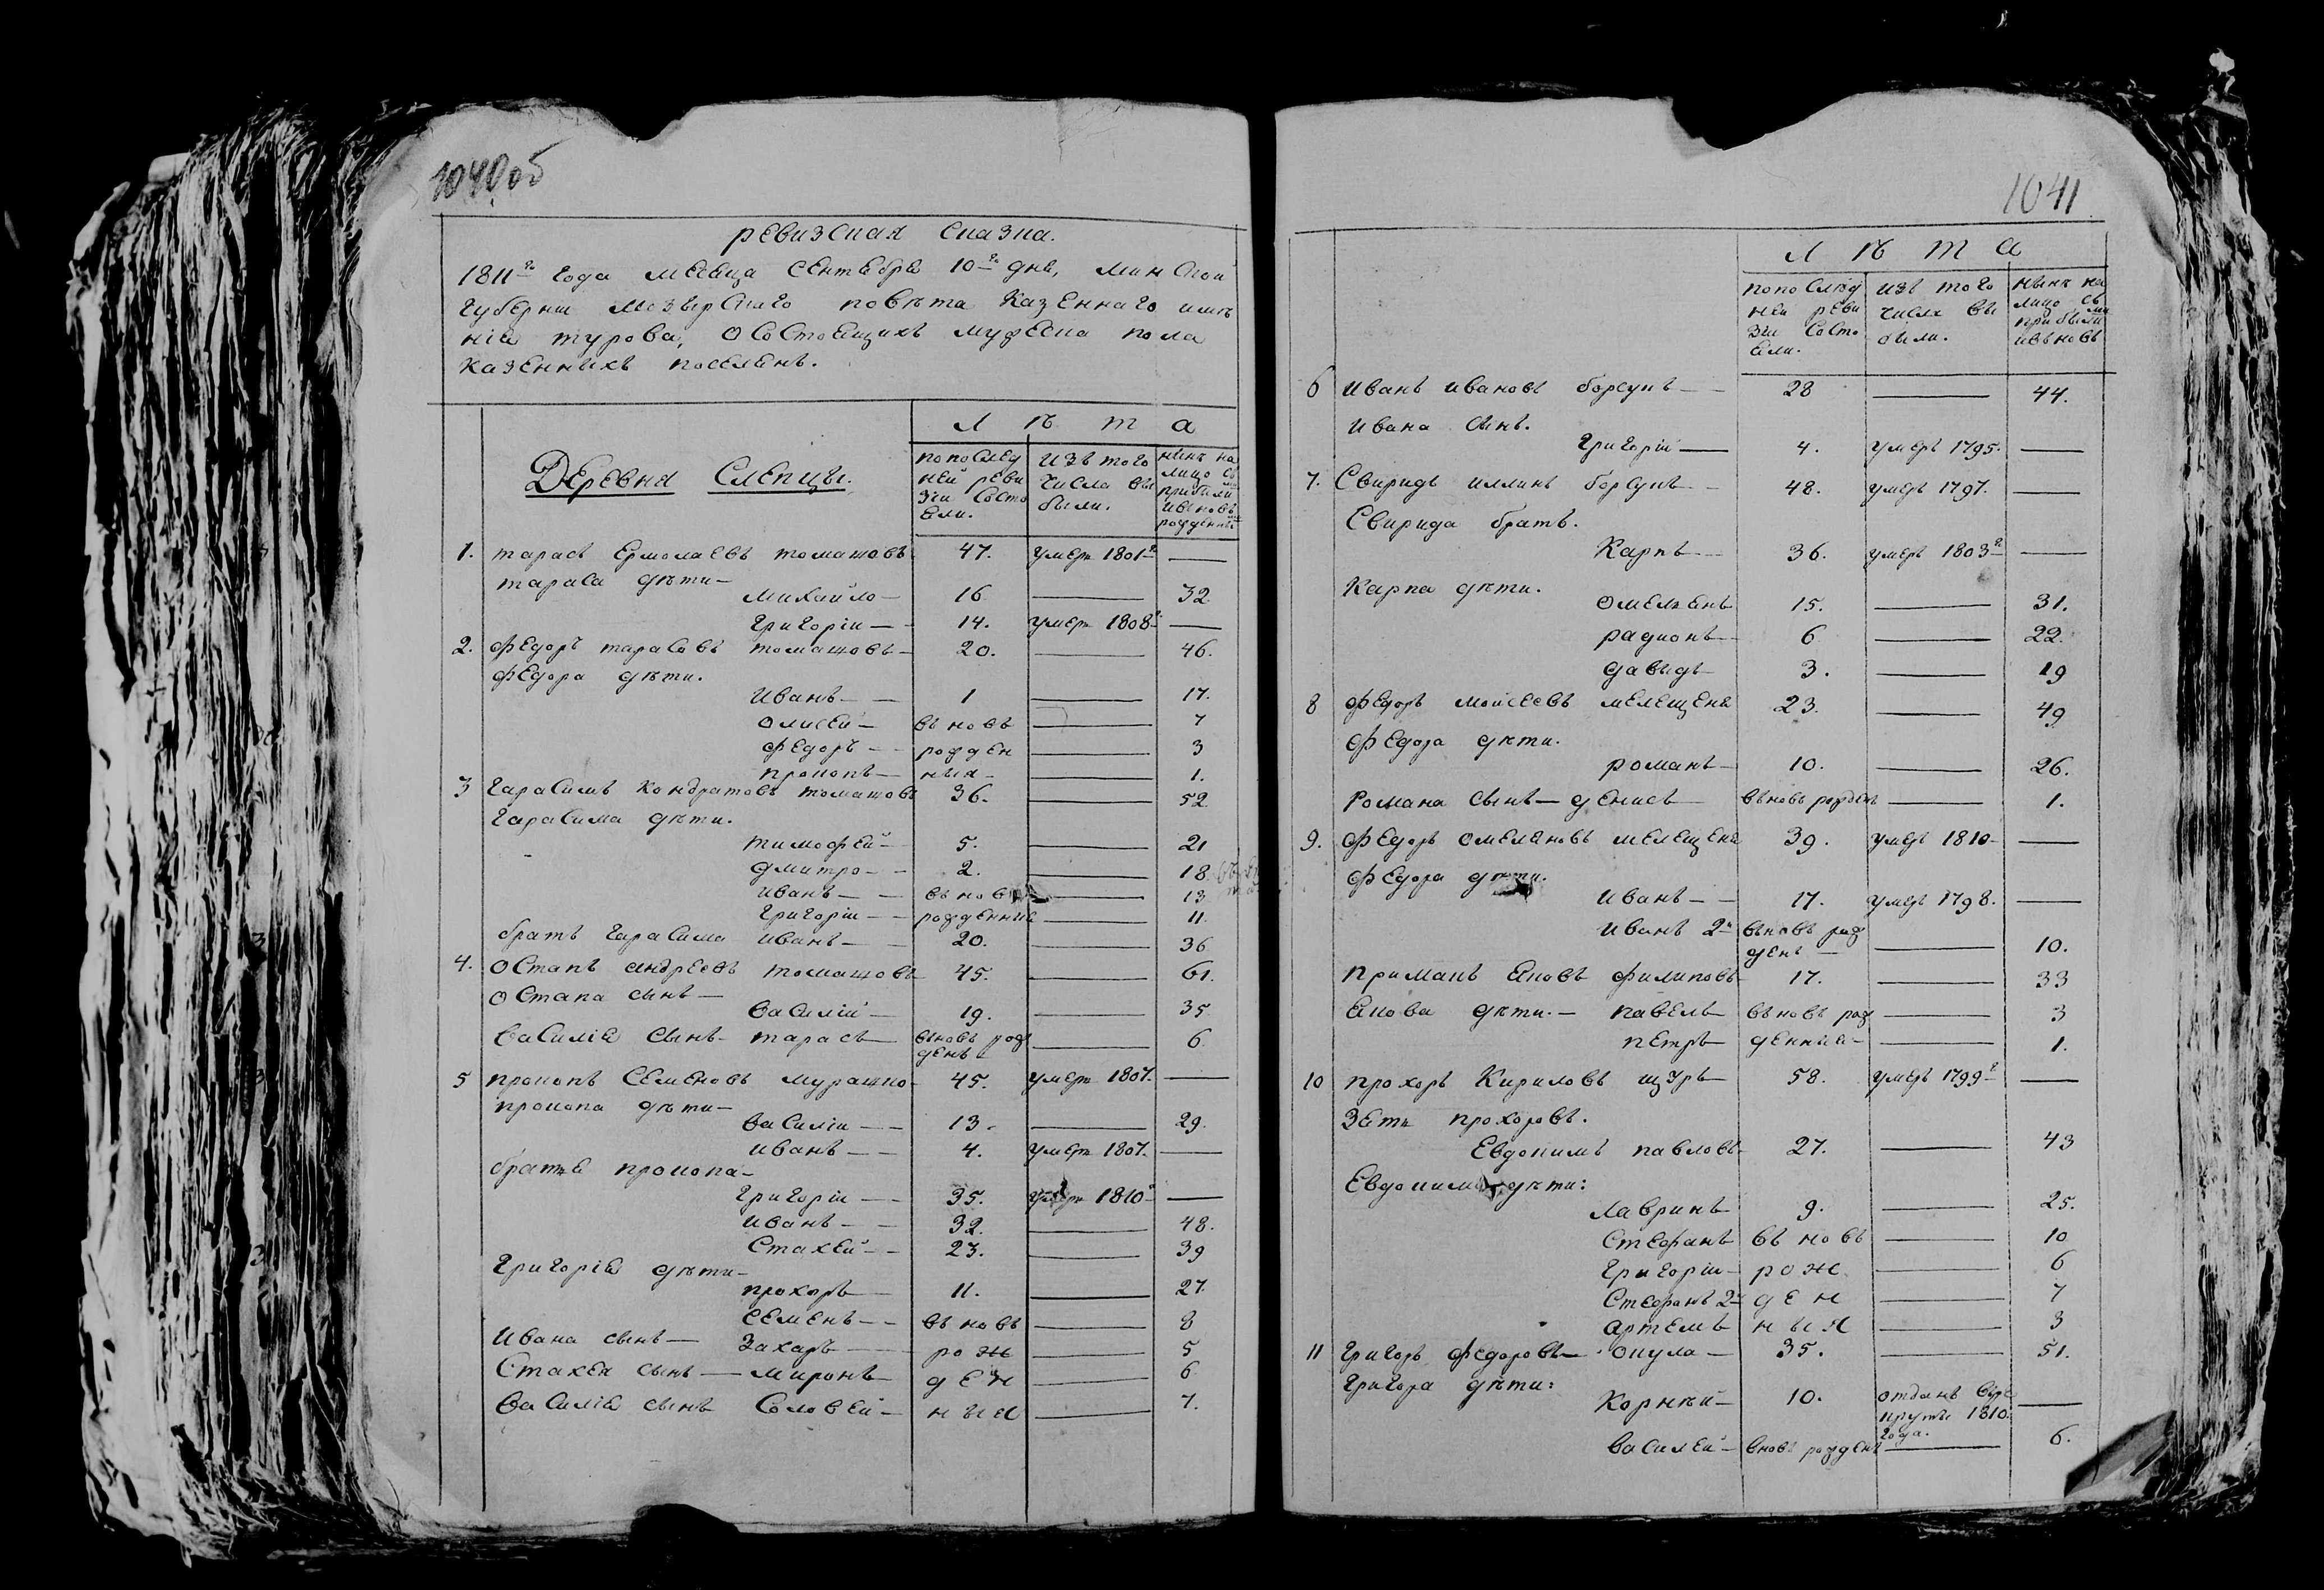 1040об
ревизская сказка.
1811го года месеца сентебре 10го дне, минской
губернии мозырскаго повѣта казеннаго имѣ
ніе турова, осостоещихъ мужеска пола
казенныхъ поселенъ.
Деревня Слепцы.
Л ѣ т а
по послед
ней реви
зіи состо
ели.
изъ того
числа вы
были.
нынѣ на
лицо съ
прибыли
ивьновь
рожденны
1. тарасъ Ермолаевъ томашовъ 47. умеръ 1801г —
тараса дѣти —
Михайло — 16 — 32
григоріи — 14. умеръ 1808г —
2. федоръ тарасовъ томашовъ — 20. — 46.
федора дѣти.
иванъ — 1 — 17.
олисей — вьновь — 7
федоръ — рожден — 3
прокопъ — ныя — 1.
3 гарасимъ кондратовъ томашовъ 36. — 52
гарасима дѣти.
тимофей — 5. — 21
дмитро — 2. — 18
иванъ — вьновь — 13
григоріи — рожденние — 11.
братъ гарасима иванъ — 20. — 36
4. остапъ андреевъ томашовъ 45. — 61.
остапа сынъ —
василій — 19. — 35
василіе сынъ — тарасъ вьновь рож
денъ — 6.
5 прокопъ семеновъ мурашко — 45. умеръ 1807. —
прокопа дѣти —
василіи — 13. — 29.
иванъ — 4. умеръ 1807. —
братье прокопа —
григоріи — 35. умеръ 1810г —
иванъ — 32. — 48.
стахей — 23. — 39
григоріе дѣти —
прохоръ — 11. — 27
семенъ — вьновь — 8
ивана сынъ — захаръ — рож — 5
стахея сынъ — миронъ — ден — 6
василіе сынъ соловей — ныя — 7.
1041
Л ѣ т а
по послѣд
ней реви
зіи состо
ели.
изъ того
числа вы
были.
нынѣ на
лицо съ
прибыли
ивьновь
6 иванъ ивановъ борсукъ — 28 — 44.
ивана сынъ.
григоріи — 4. умеръ 1795. —
7. Свиридъ иллинъ борсукъ — 48. умеръ 1797. —
Свирида братъ.
Карпъ — 36. умеръ 1803г —
Карпа дѣти.
омелянъ 15. — 31.
радионъ — 6 — 22.
давыдъ — 3. — 19
8 федоръ мойсеевъ мелещеня 23. — 49
федора дѣти.
романъ — 10. — 26.
Романа сынъ — денисъ — вьновь рожденъ — 1.
9. федоръ омеляновъ мелещеня 39. умеръ 1810 —
федора дѣти.
иванъ — 17. умеръ 1798. —
иванъ 2й вьновь рож
денъ — 10.
примакъ яковъ филиповъ — 17. — 33
якова дѣти. — павелъ вьновь рож — 3
петръ денные — 1.
10 прохоръ Кириловъ щуръ — 58. умеръ 1799г —
зеть прохоровъ.
Евдокимъ павловъ — 27. — 43
Евдокима дѣти:
лавринъ 9. — 25.
стефанъ вьновь — 10
григоріи — рож — 6
стефанъ 2й ден — 7
артемъ ныя — 3
11 григоръ федоровъ — окула — 35. — 51.
григора дѣти:
Корнѣй — 10. отданъ врѣ
круты 1810.
года. —
василей — вновь рожденъ — 6.